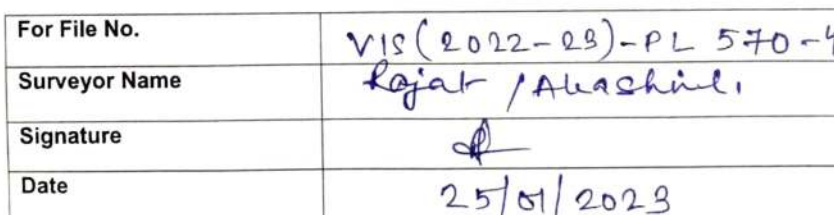 For File No. VIS(2022-23)-PL 570-4
Surveyor Name Rajat /
Signature
Date 25/01/2023